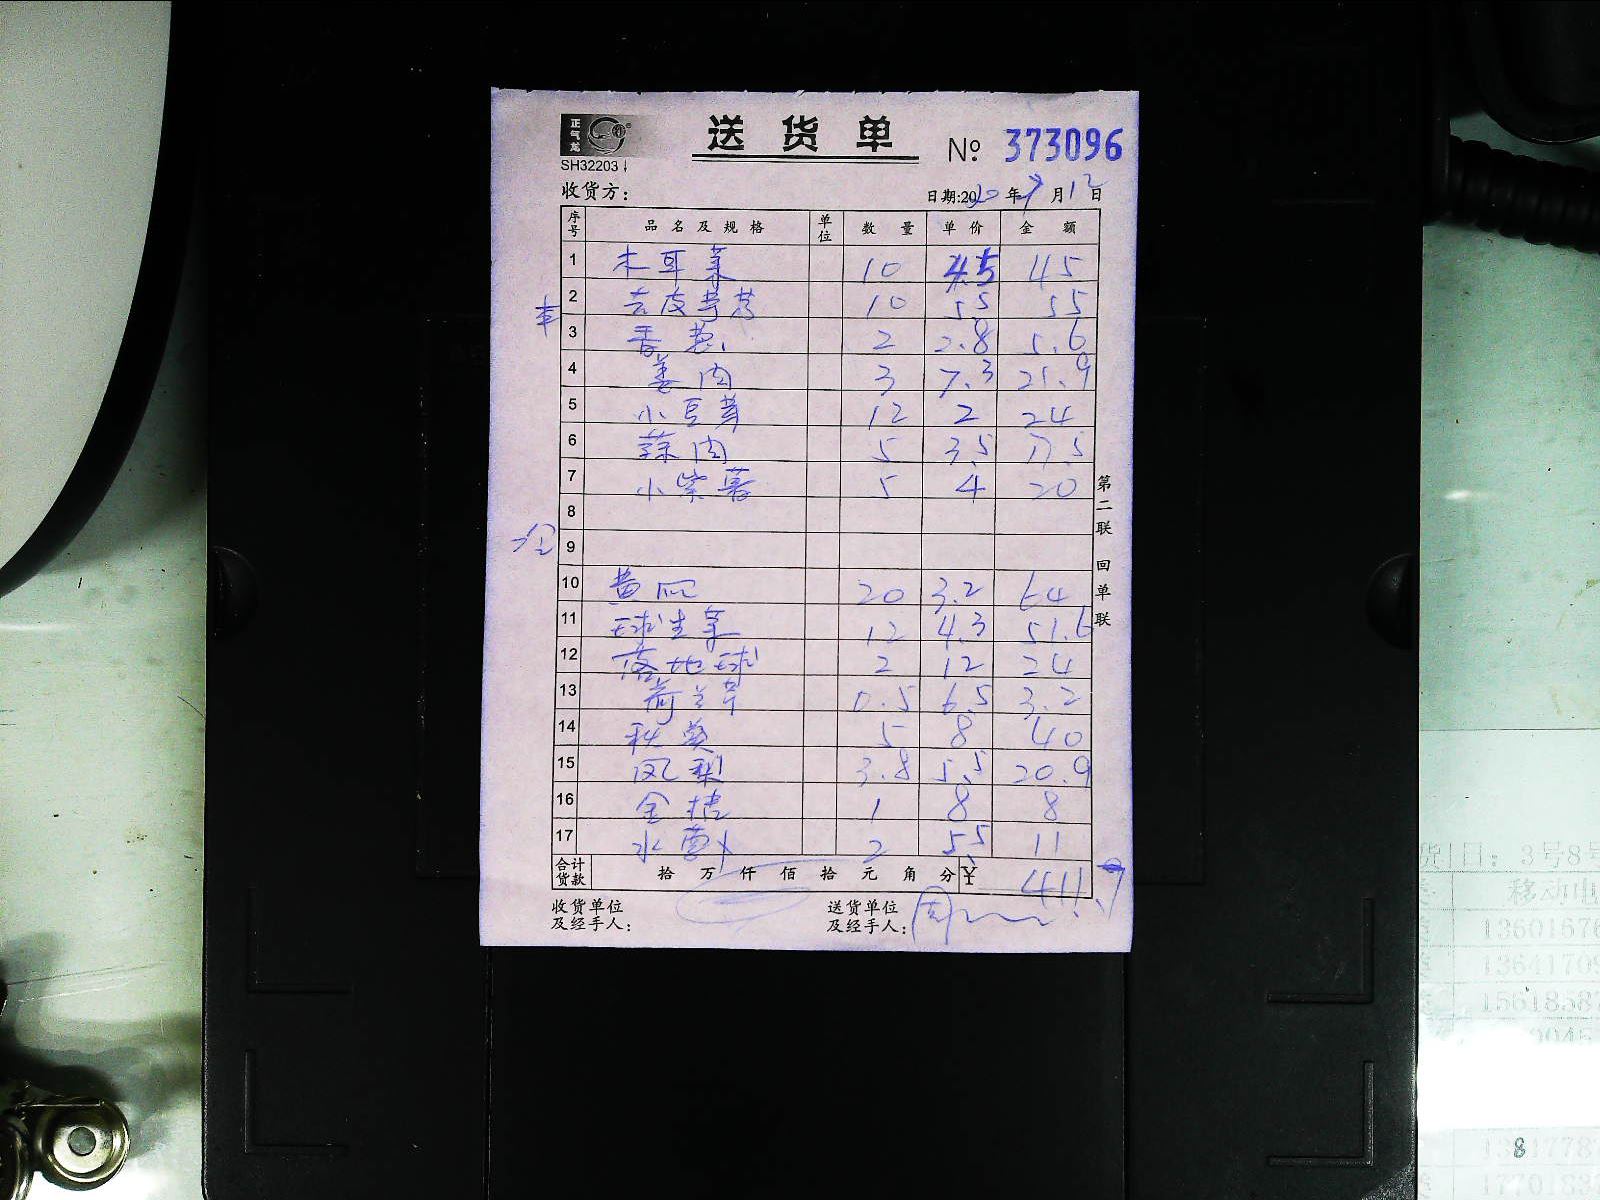 正气龙
SH32203
送货单
№ 373096
收货方:
日期:2020年9月12日
序号 品名及规格 单位 数量 单价 金额
1 木耳菜 10 4.5 45
2 去皮芋艿 10 5.5 55
3 香葱 2 2.8 5.6
4 姜肉 3 7.3 21.9
5 小豆芽 12 2 24
6 蒜肉 5 3.5 17.5
7 小紫薯 5 4 20
8
9
10 黄瓜 20 3.2 64
11 球生菜 12 4.3 51.6
12 落地球 2 12 24
13 荷兰芹 0.5 6.5 3.2
14 秋葵 5 8 40
15 凤梨 3.8 5.5 20.9
16 金桔 1 8 8
17 水萝卜 2 5.5 11
合计货款 拾 万 仟 佰 拾 元 角 分 ¥ 411.7
收货单位及经手人:
送货单位及经手人: 周
第二联 回单联
日: 3号8号
移动电
1360167
1364170
1561858